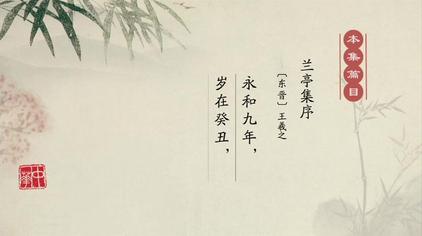 本集篇目
兰亭集序
〔东晋〕王羲之
永和九年，
岁在癸丑，
中华